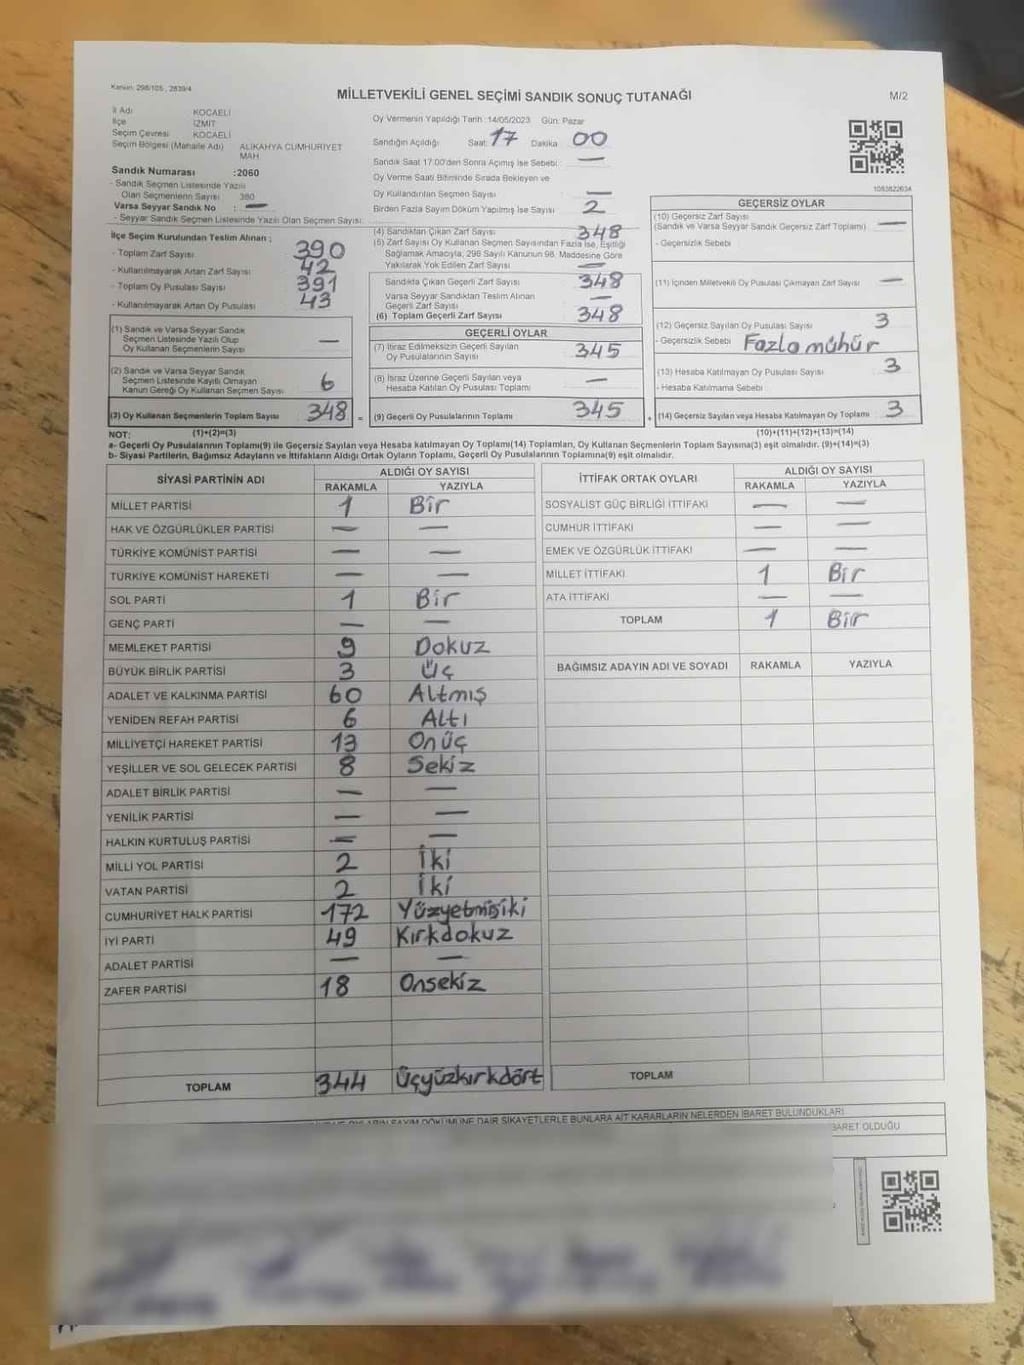 Kanun: 298/105, 2839/4
MİLLETVEKİLİ GENEL SEÇİMİ SANDIK SONUÇ TUTANAĞI
M/2
İl Adı KOCAELİ
İlçe İZMİT
Seçim Çevresi KOCAELİ
Seçim Bölgesi (Mahalle Adı) ALİKAHYA CUMHURİYET MAH
Sandık Numarası :2060
- Sandık Seçmen Listesinde Yazılı
Olan Seçmenlerin Sayısı 380
Varsa Seyyar Sandık No : —
- Seyyar Sandık Seçmen Listesinde Yazılı Olan Seçmen Sayısı:
Oy Vermenin Yapıldığı Tarih :14/05/2023 Gün: Pazar
Sandığın Açıldığı Saat: 17 Dakika 00
Sandık Saat 17.00'den Sonra Açımış İse Sebebi: —
Oy Verme Saati Bitiminde Sırada Bekleyen ve
Oy Kullandırılan Seçmen Sayısı —
Birden Fazla Sayım Döküm Yapılmış İse Sayısı 2
1083822634
İlçe Seçim Kurulundan Teslim Alınan ;
- Toplam Zarf Sayısı 390
- Kullanılmayarak Artan Zarf Sayısı 42
- Toplam Oy Pusulası Sayısı 391
- Kullanılmayarak Artan Oy Pusulası 43
(1) Sandık ve Varsa Seyyar Sandık
Seçmen Listesinde Yazılı Olup
Oy Kullanan Seçmenlerin Sayısı —
(2) Sandık ve Varsa Seyyar Sandık
Seçmen Listesinde Kayıtlı Olmayan
Kanun Gereği Oy Kullanan Seçmen Sayısı 6
(3) Oy Kullanan Seçmenlerin Toplam Sayısı 348 =
(4) Sandıktan Çıkan Zarf Sayısı 348
(5) Zarf Sayısı Oy Kullanan Seçmen Sayısından Fazla İse, Eşitliği
Sağlamak Amacıyla, 298 Sayılı Kanunun 98. Maddesine Göre
Yakılarak Yok Edilen Zarf Sayısı —
Sandıkta Çıkan Geçerli Zarf Sayısı 348
Varsa Seyyar Sandıktan Teslim Alınan
Geçerli Zarf Sayısı —
(6) Toplam Geçerli Zarf Sayısı 348
GEÇERLİ OYLAR
(7) İtiraz Edilmeksizin Geçerli Sayılan
Oy Pusulalarının Sayısı 345
(8) İtiraz Üzerine Geçerli Sayılan veya
Hesaba Katılan Oy Pusulası Toplamı —
(9) Geçerli Oy Pusulalarının Toplamı 345 +
GEÇERSİZ OYLAR
(10) Geçersiz Zarf Sayısı
(Sandık ve Varsa Seyyar Sandık Geçersiz Zarf Toplamı) —
- Geçersizlik Sebebi
(11) İçinden Milletvekili Oy Pusulası Çıkmayan Zarf Sayısı —
(12) Geçersiz Sayılan Oy Pusulası Sayısı 3
- Geçersizlik Sebebi Fazla mühür
(13) Hesaba Katılmayan Oy Pusulası Sayısı 3
- Hesaba Katılmama Sebebi
(14) Geçersiz Sayılan veya Hesaba Katılmayan Oy Toplamı 3
NOT: (1)+(2)=(3) (10)+(11)+(12)+(13)=(14)
a- Geçerli Oy Pusulalarının Toplamı(9) ile Geçersiz Sayılan veya Hesaba katılmayan Oy Toplamı(14) Toplamları, Oy Kullanan Seçmenlerin Toplam Sayısına(3) eşit olmalıdır. (9)+(14)=(3)
b- Siyasi Partilerin, Bağımsız Adayların ve İttifakların Aldığı Ortak Oyların Toplamı, Geçerli Oy Pusulalarının Toplamına(9) eşit olmalıdır.
SİYASİ PARTİNİN ADI ALDIĞI OY SAYISI
RAKAMLA YAZIYLA
MİLLET PARTİSİ 1 Bir
HAK VE ÖZGÜRLÜKLER PARTİSİ — —
TÜRKİYE KOMÜNİST PARTİSİ — —
TÜRKİYE KOMÜNİST HAREKETİ — —
SOL PARTİ 1 Bir
GENÇ PARTİ — —
MEMLEKET PARTİSİ 9 Dokuz
BÜYÜK BİRLİK PARTİSİ 3 Üç
ADALET VE KALKINMA PARTİSİ 60 Altmış
YENİDEN REFAH PARTİSİ 6 Altı
MİLLİYETÇİ HAREKET PARTİSİ 13 Onüç
YEŞİLLER VE SOL GELECEK PARTİSİ 8 Sekiz
ADALET BİRLİK PARTİSİ — —
YENİLİK PARTİSİ — —
HALKIN KURTULUŞ PARTİSİ — —
MİLLİ YOL PARTİSİ 2 İki
VATAN PARTİSİ 2 İki
CUMHURİYET HALK PARTİSİ 172 Yüzyetmişiki
İYİ PARTİ 49 Kırkdokuz
ADALET PARTİSİ — —
ZAFER PARTİSİ 18 Onsekiz
TOPLAM 344 Üçyüzkırkdört
İTTİFAK ORTAK OYLARI ALDIĞI OY SAYISI
RAKAMLA YAZIYLA
SOSYALİST GÜÇ BİRLİĞİ İTTİFAKI — —
CUMHUR İTTİFAKI — —
EMEK VE ÖZGÜRLÜK İTTİFAKI — —
MİLLET İTTİFAKI 1 Bir
ATA İTTİFAKI — —
TOPLAM 1 Bir
BAĞIMSIZ ADAYIN ADI VE SOYADI RAKAMLA YAZIYLA
TOPLAM
OYLARIN SAYIM DÖKÜMÜNE DAİR ŞİKAYETLERLE BUNLARA AİT KARARLARIN NELERDEN İBARET BULUNDUKLARI
İBARET OLDUĞU